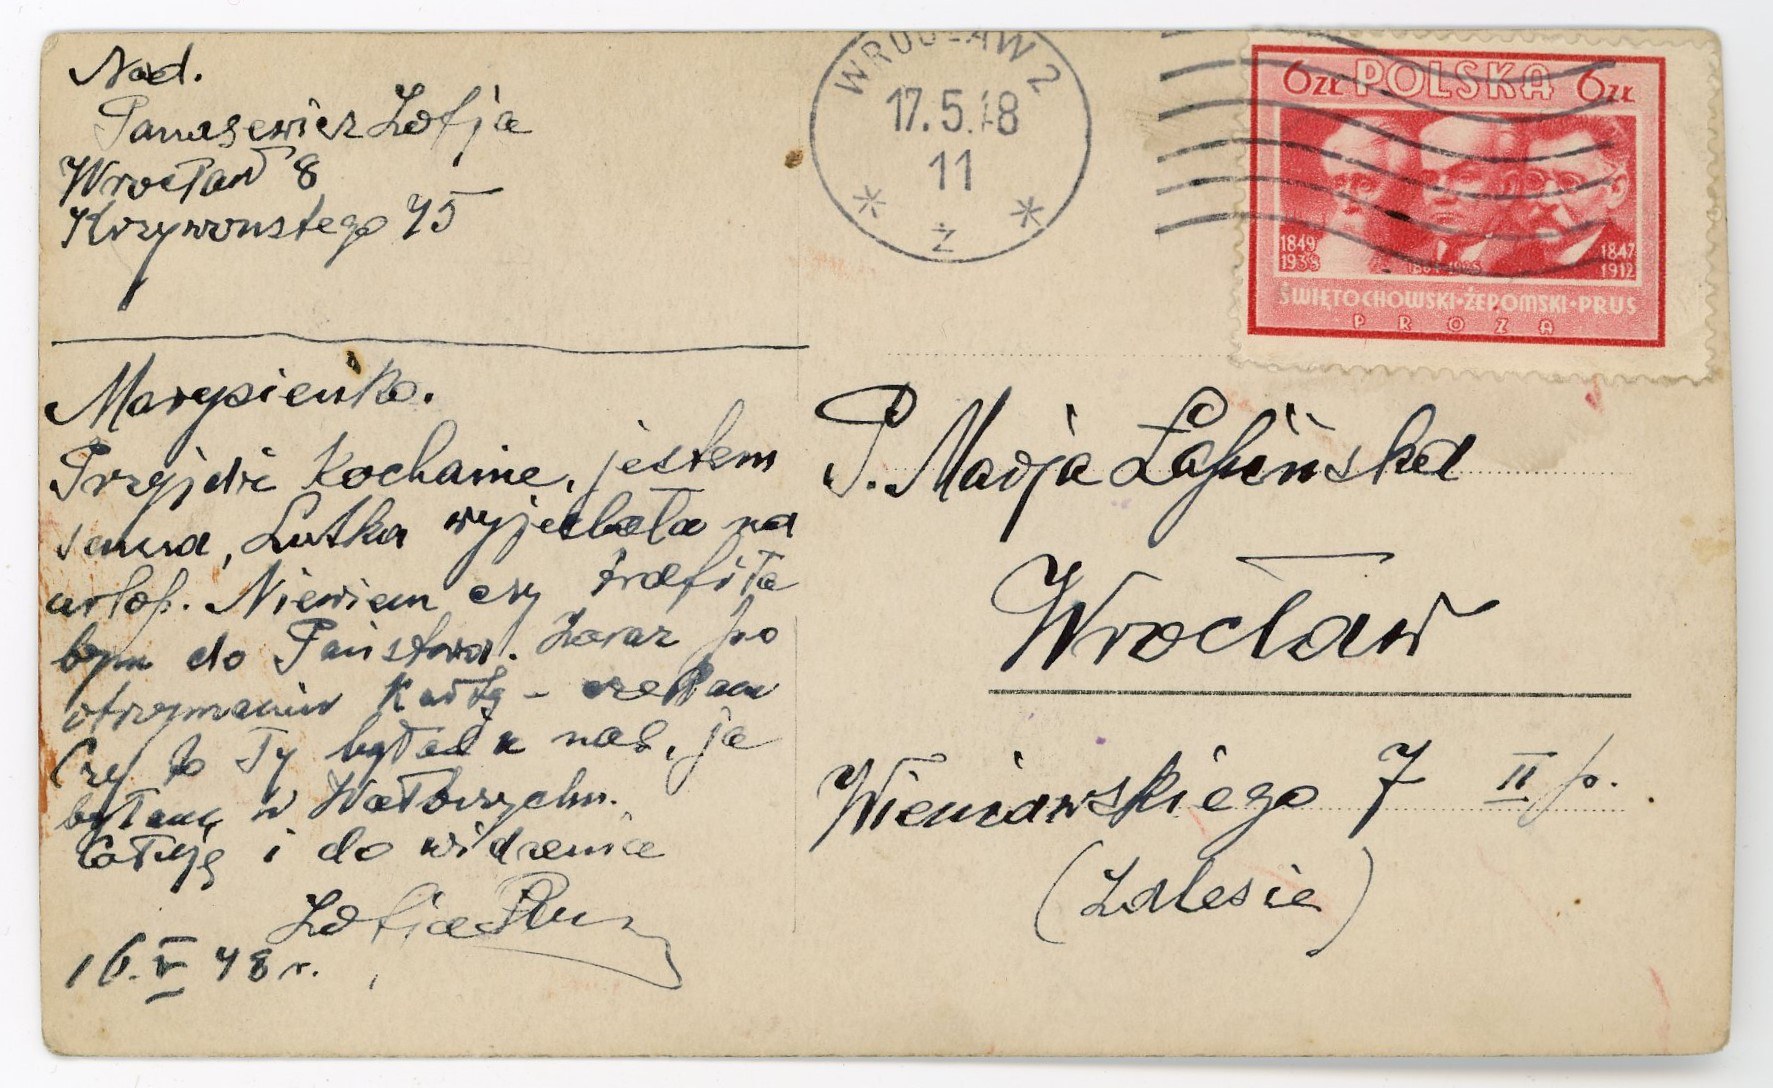 Nad.
Panasewicz Zofja
Wrocław 8
Krzywoustego 75
WROCŁAW 2
17.5.48
11
ż
6zł POLSKA 6zł
1849
1938
1847
1912
ŚWIĘTOCHOWSKI·ŻEROMSKI·PRUS
PROZA
Marysieńko.
Przyjdź Kochanie, jestem
sama, Lutka wyjechała na
urlop. Niewiem czy trafiła
bym do Państwa. Zaraz po
otrzymaniu Kartę – czekam
Czy to Ty byłaś u nas, ja
byłam w Wałbrzychu.
Całuję i do widzenia
Zofia
16.V 48 r.
P. Marja Łapińska
Wrocław
Wieniawskiego 7 II p.
(Zalesie)